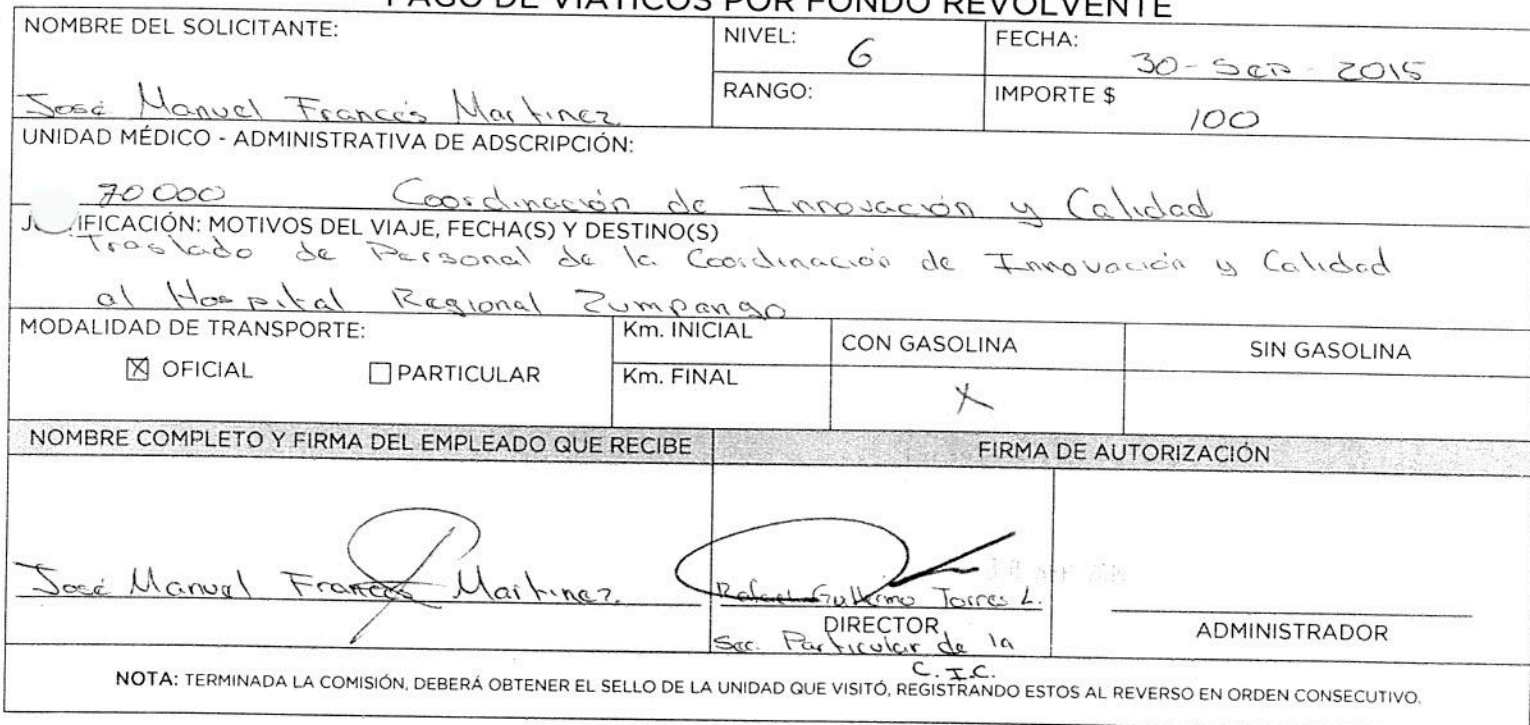 PAGO DE VIÁTICOS POR FONDO REVOLVENTE
NOMBRE DEL SOLICITANTE:
José Manuel Francés Martinez
NIVEL: 6
FECHA: 30-Sep-2015
RANGO:
IMPORTE $ 100
UNIDAD MÉDICO - ADMINISTRATIVA DE ADSCRIPCIÓN:
70000 Coordinación de Innovación y Calidad
J IFICACIÓN: MOTIVOS DEL VIAJE, FECHA(S) Y DESTINO(S)
Traslado de Personal de la Coordinación de Innovación y Calidad
al Hospital Regional Zumpango
MODALIDAD DE TRANSPORTE:
☒ OFICIAL ☐ PARTICULAR
Km. INICIAL
Km. FINAL
CON GASOLINA
X
SIN GASOLINA
NOMBRE COMPLETO Y FIRMA DEL EMPLEADO QUE RECIBE
FIRMA DE AUTORIZACIÓN
José Manuel Francés Martinez
Rafael Guillermo Torres L.
DIRECTOR
Sec. Particular de la
C.I.C.
ADMINISTRADOR
NOTA: TERMINADA LA COMISIÓN, DEBERÁ OBTENER EL SELLO DE LA UNIDAD QUE VISITÓ, REGISTRANDO ESTOS AL REVERSO EN ORDEN CONSECUTIVO.